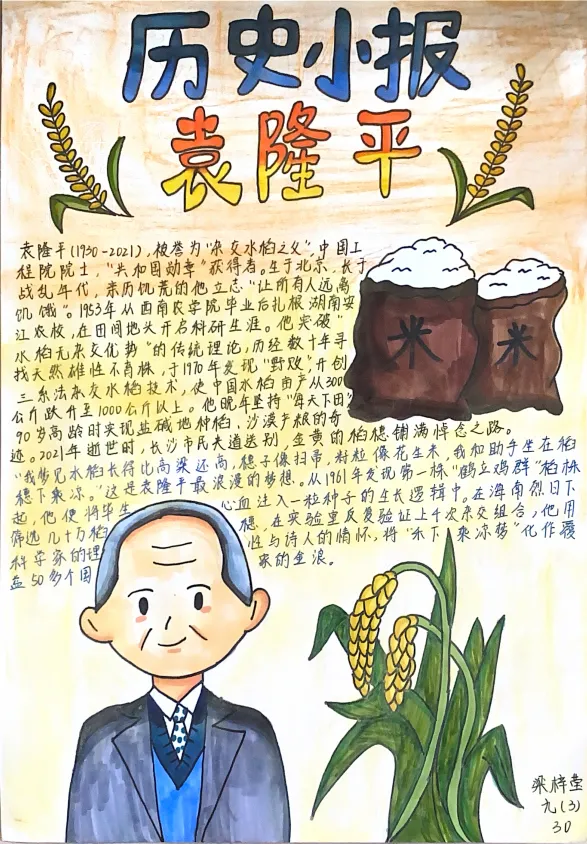 历史小报
袁隆平
袁隆平(1930-2021),被誉为"杂交水稻之父",中国工
程院院士,"共和国勋章"获得者。生于北京,长于
战乱年代,亲历饥荒的他立志"让所有人远离
饥饿"。1953年从西南农学院毕业后扎根湖南安
江农校,在田间地头开启科研生涯。他突破"
水稻无杂交优势"的传统理论,历经数十年寻
找天然雄性不育株,于1970年发现"野败",开创
三系法杂交水稻技术,使中国水稻亩产从300
公斤跃升至1000公斤以上。他晚年坚持"每天下田"
90岁高龄时实现盐碱地种稻,沙漠产粮的奇
迹。2021年逝世时,长沙市民夹道送别,金黄的稻穗铺满悼念之路。
"我梦见水稻长得比高粱还高,穗子像扫帚,籽粒像花生米,我和助手坐在稻
穗下乘凉。"这是袁隆平最浪漫的梦想。从1961年发现第一株"鹤立鸡群"稻株
起,他便将毕生心血注入一粒种子的生长逻辑中。在海南烈日下
筛选几十万稻穗,在实验室反复验证上千次杂交组合,他用
科学家的理性与诗人的情怀,将"禾下乘凉梦"化作覆
盖50多个国家的金浪。
米
米
梁梓莹
九(3)
30